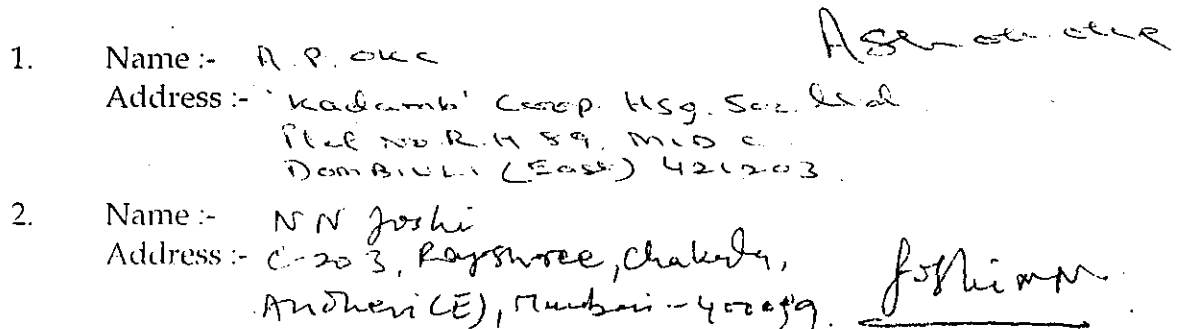 1. Name :- A. P. OKE
Address :- 'Kadamb' Coop. Hsg. Soc. Ltd
Plot No R. H 59, MIDC
DOMBIVLI (East) 421203.
2. Name :- N N Joshi
Address :- C-203, Rajshree, Chakala,
Andheri (E), Mumbai - 400099. Joshi NN